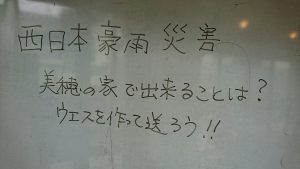 西日本豪雨災害
美穂の家で出来ることは?
ウエスを作って送ろう!!